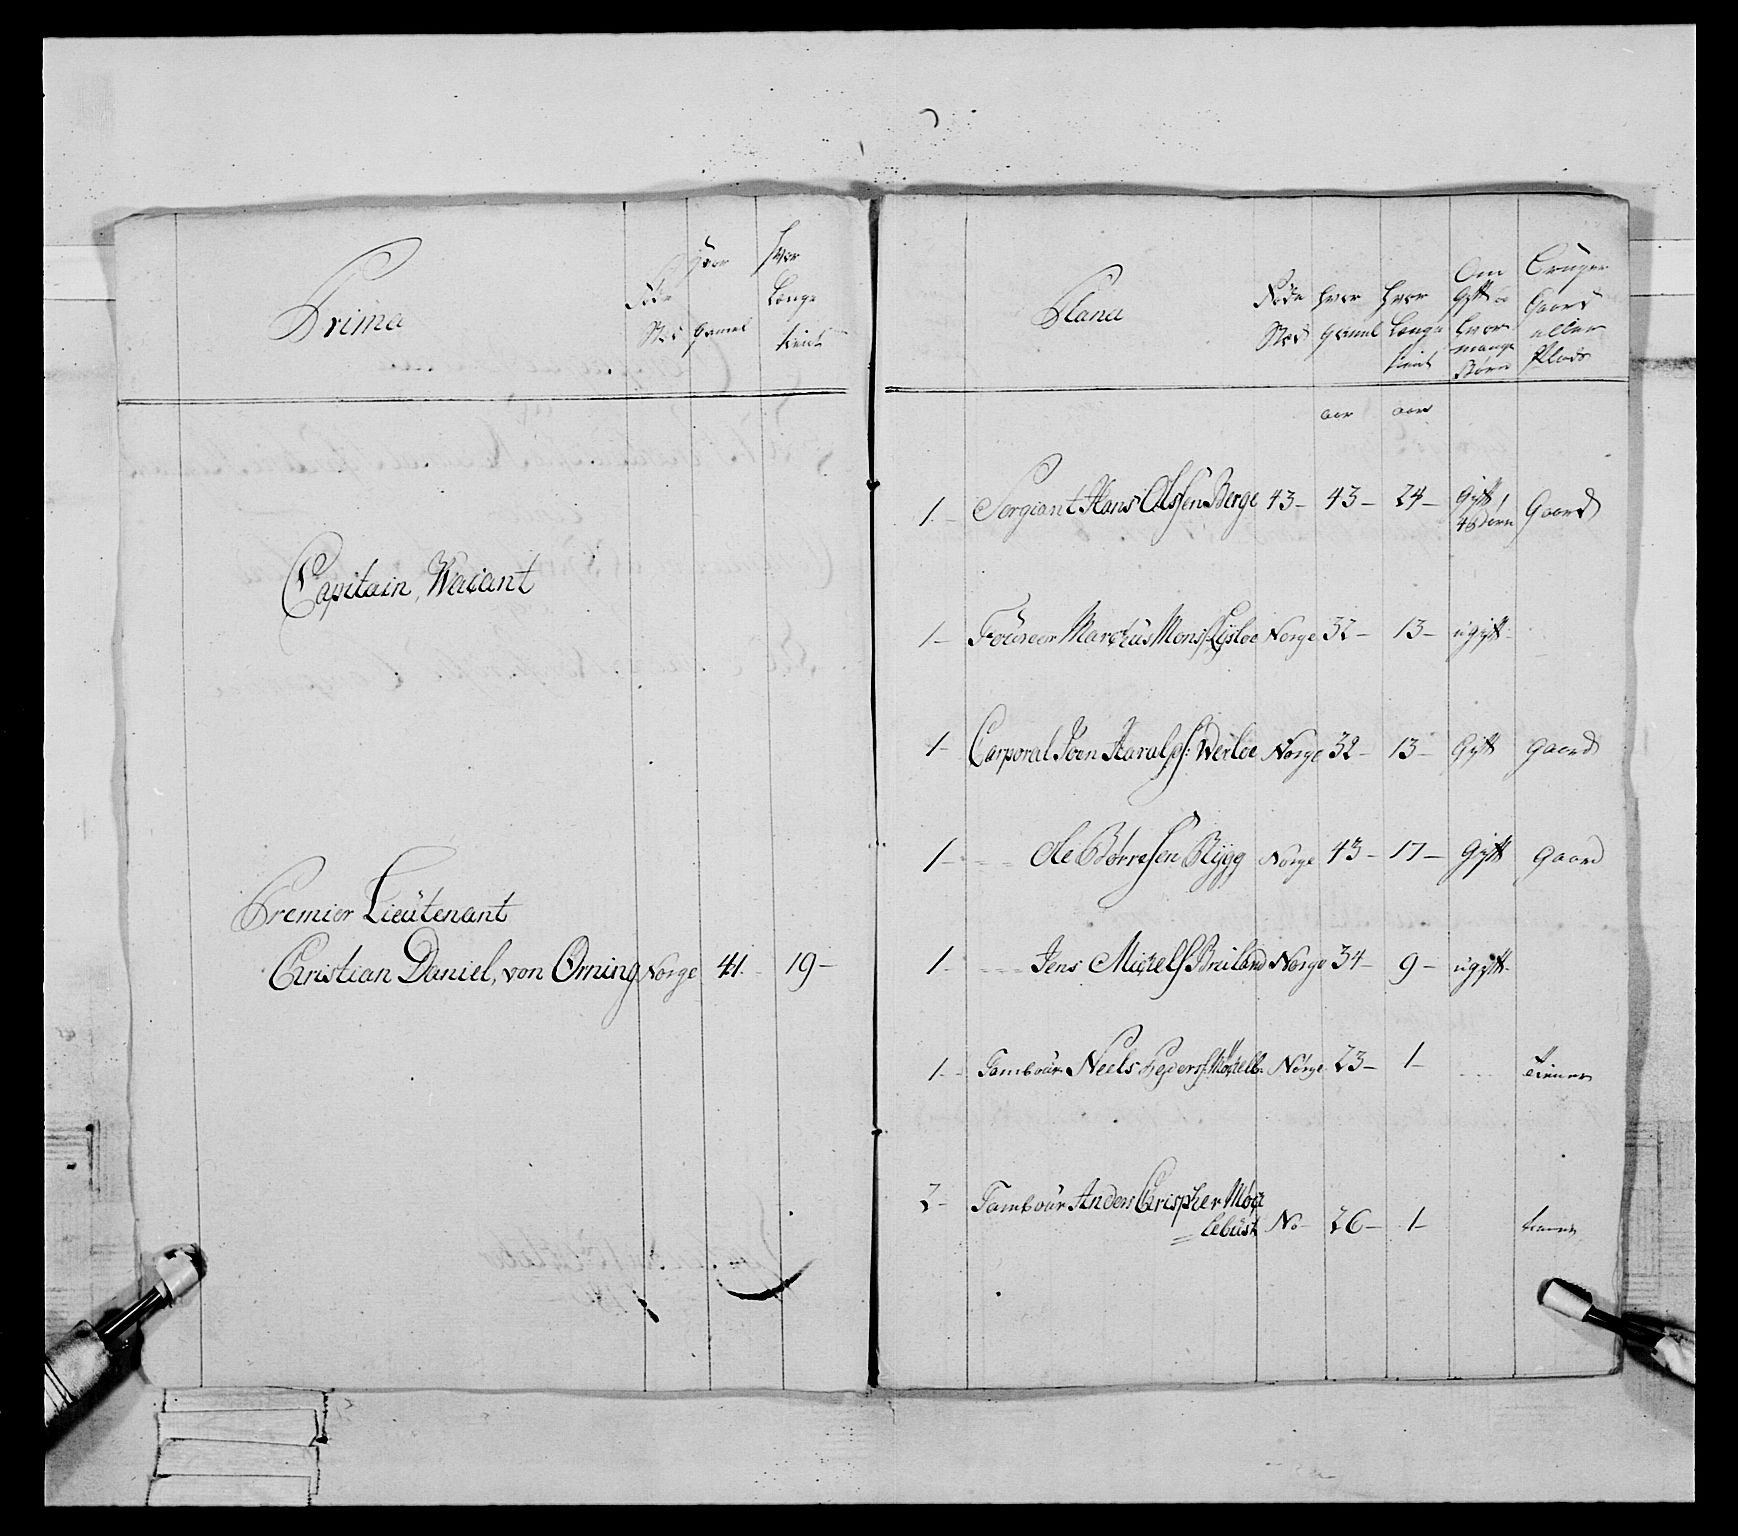 Prima
Føde Sted
Hvor Gamel
Hvor Længe tient
Capitain, Wacant
Premier Lieütenant
Christian Daniel, von Orning Norge 41. 19-
Plana
Føde Sted
Hvor Gamel
Hvor Længe tient
Om Gyft og Hvor mange Børn
Bruger Gaard eller Plads
aar aar
1. Sergiant Hans Olssen Berge 43- 43- 24- Gyft, 4 Børn Gaard
1- Foüreer Marchüs Mons Lysloe Norge 32- 13- ugyft
1- Carporal Joen Haralds: Werloe Norge 32- 13- Gyft Gaard
1- Ole Børresen Rygg Norge 43- 17- Gyft Gaard
1- Jens Michels Breiland Norge 34- 9- ugyft
1- Tamboür Neels Peders: Norge 23- 1- tienner
2- Tamboür Anders Chrispher Mochlebüst No- 26- 1-